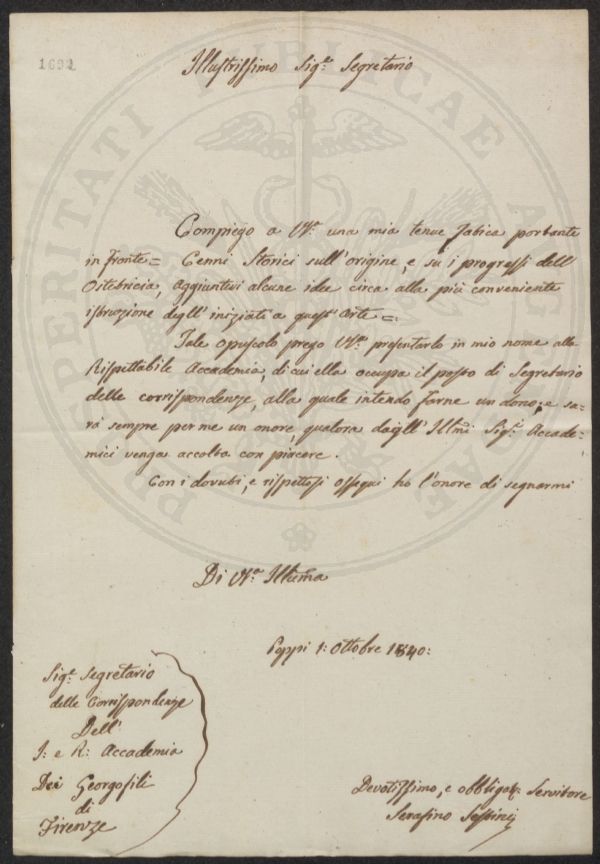 1692
Illustrissimo Sig.r Segretario
Compiego a V.a una mia tenue fatica portante
in fronte = Cenni Storici sull'origine, e su i progressi dell'
Ostetricia, aggiuntevi alcune idee circa alla più conveniente
istruzione degll' iniziati a quest'Arte =.
Tale opuscolo prego V.a presentarlo in mio nome alla
Rispettabile Accademia, di cui ella occupa il posto di Segretario
delle corrispondenze, alla quale intendo farne un dono; e sa-
rà sempre per me un onore, qualora dagll' Illmi Sig.i Accade-
mici venga accolta con piacere.
Con i dovuti, e rispettosi ossequi ho l'onore di segnarmi
Di V.a Illuma
Poppi 1: Ottobre 1840:
Sig.r Segretario
delle Corrispondenze
Dell'
I: e R: Accademia
Dei Georgofili
di
Firenze
Devotissimo, e obbligat: Servitore
Serafino
PROSPERITATI PUBLICAE AUGENDAE